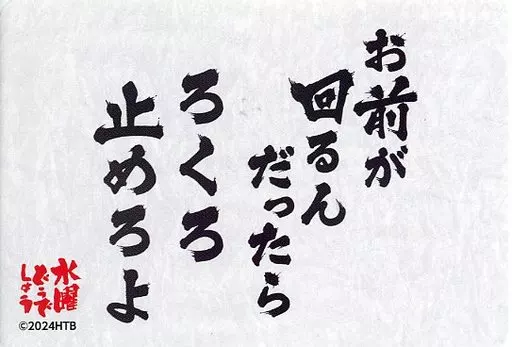 お前が
回るん
だったら
ろくろ
止めろよ
水曜
どうで
しょう
©2024HTB